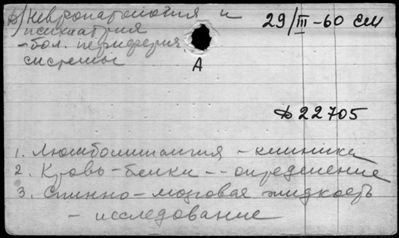 б) Невропатология и
психиатрия
29/III-60 см
- бол. периферич.
системы
А
Д 22705
1. Люмбоишиалгия - клиника
2. Кровь - белки - - определение
3. Спинно-мозговая жидкость
- исследование